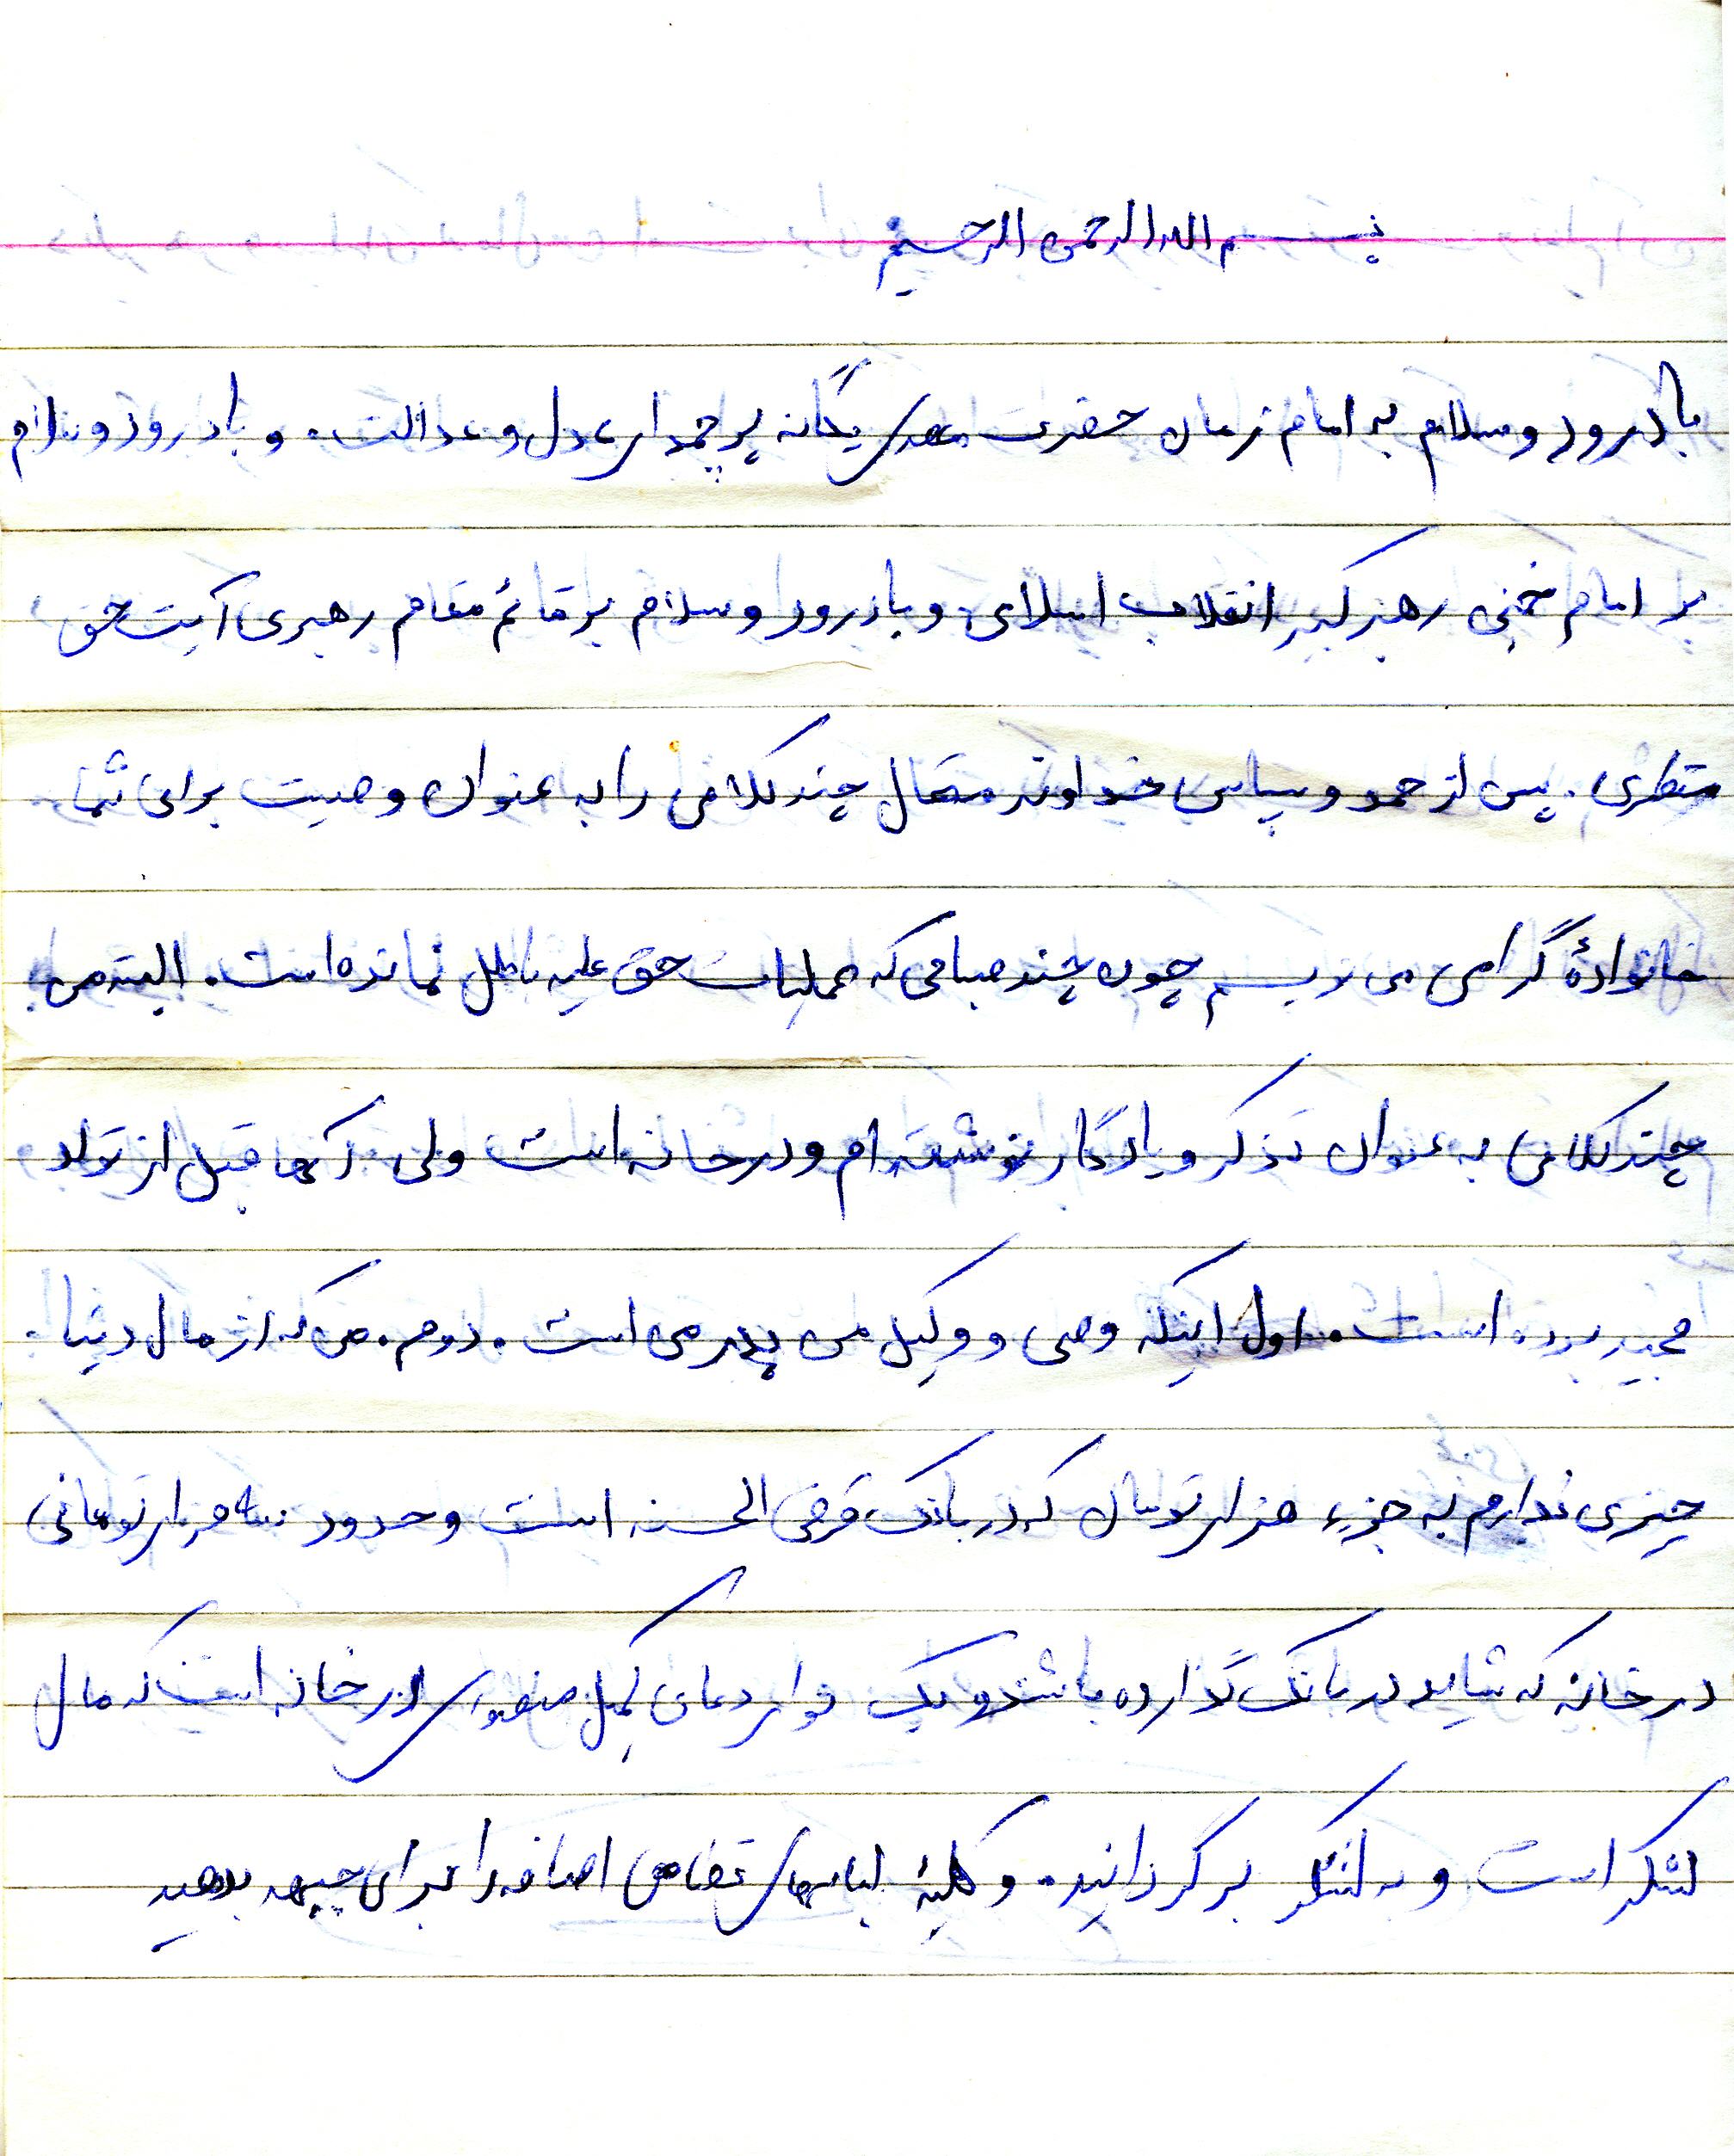 بسم الله الرحمن الرحیم
با درود و سلام به امام زمان حضرت مهدی یگانه پرچمدار عدل و عدالت. و با درود و سلام
بر امام خمینی رهبر کبیر انقلاب اسلامی و با درود و سلام بر قائم مقام رهبری آیت حق
منتظری. پس از حمد و سپاس خداوند متعال چند کلامی را به عنوان وصیت برای شما
خانوادهٔ گرامی می نویسم چون چند صباحی که عملیات حق علیه باطل نمانده است. البته من
چند کلامی به عنوان تذکر و یادگار نوشته ام و در خانه است ولی آنها قبل از تولد
مجید بوده است. اول اینکه وصی و وکیل من پدر من است. دوم. من که از مال دنیا
چیزی ندارم به جزء هزار تومان که در بانک قرض الحسنه است و حدود پنجاه هزار تومانی
در خانه که شاید در بانک گذارده باشند و یک نوار دعای کمیل منصوری در خانه است که مال
لشکر است و به لشکر برگردانید. و کلیهٔ لباسهای نظامی اضافه را برای جبهه بدهید